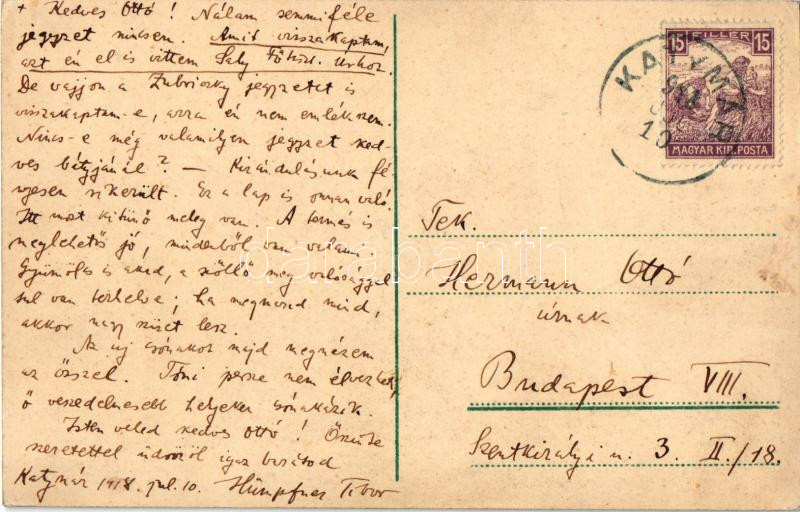 + Kedves Ottó! Nálam semmiféle
jegyzet nincsen. Amit visszakaptam,
azt én el is vittem Saly főtiszt. Úrhoz.
De vajjon a Zubriczky jegyzetet is
visszakaptam-e, arra én nem emlékszem.
Nincs-e még valamilyen jegyzet ked-
ves bátyjánál? — Kirándulásunk fé-
nyesen sikerült. Ez a lap is onnan való.
Itt most kitünő meleg van. A termés is
meglehetős jó, mindenből van valami
Gyümölcs is akad, a szőllő meg valósággal
tul van terhelve; ha megmarad mind,
akkor nagy szüret lesz.
Az uj csónakot majd megnézem
az ősszel. Tóni persze nem élvezheti,
ő veszedelmesebb helyeken csónakázik.
Isten veled kedves Ottó! Őszinte
szeretettel üdvözöl igaz barátod
Katymár 1918. jul. 10. Hümpfner Tibor
15 FILLÉR 15
MAGYAR KIR. POSTA
KATYMÁR
918
10
Tek.
Hermann Ottó
úrnak
Budapest VIII.
Szentkirályi u. 3. II./18.
darabanth